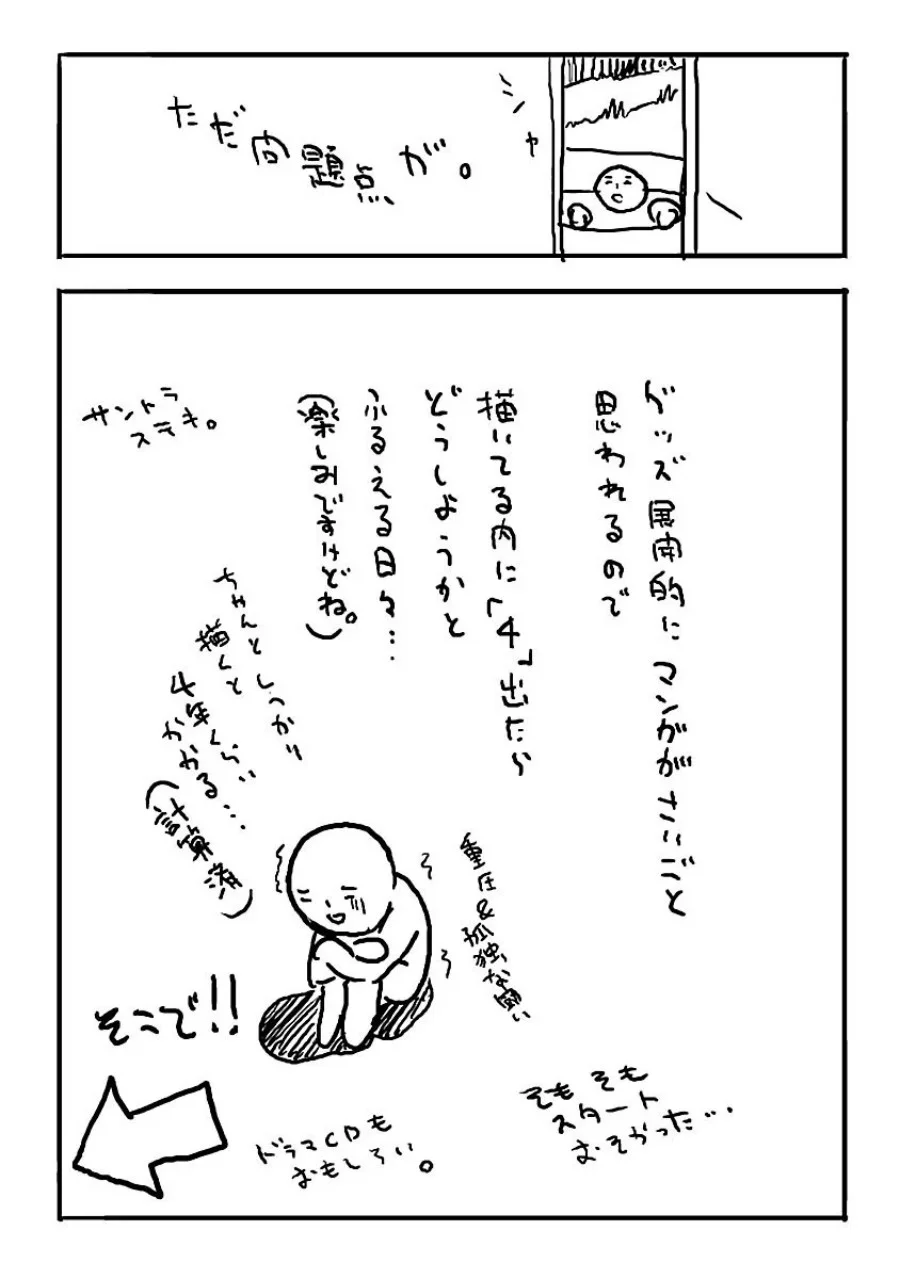 ただ問題点が。
シャ
グッズ展開的にマンガがさいごと
思われるので
描いてる内に「4」出たら
どうしようかと
ふるえる日々…
(楽しみですけどね。)
サントラ
ステキ。
ちゃんとしっかり
描くと
4年くらい
かかる…
(計算済)
重圧&孤独な闘い
そもそも
スタート
おそかった…
ドラマCDも
おもしろい。
そこで!!